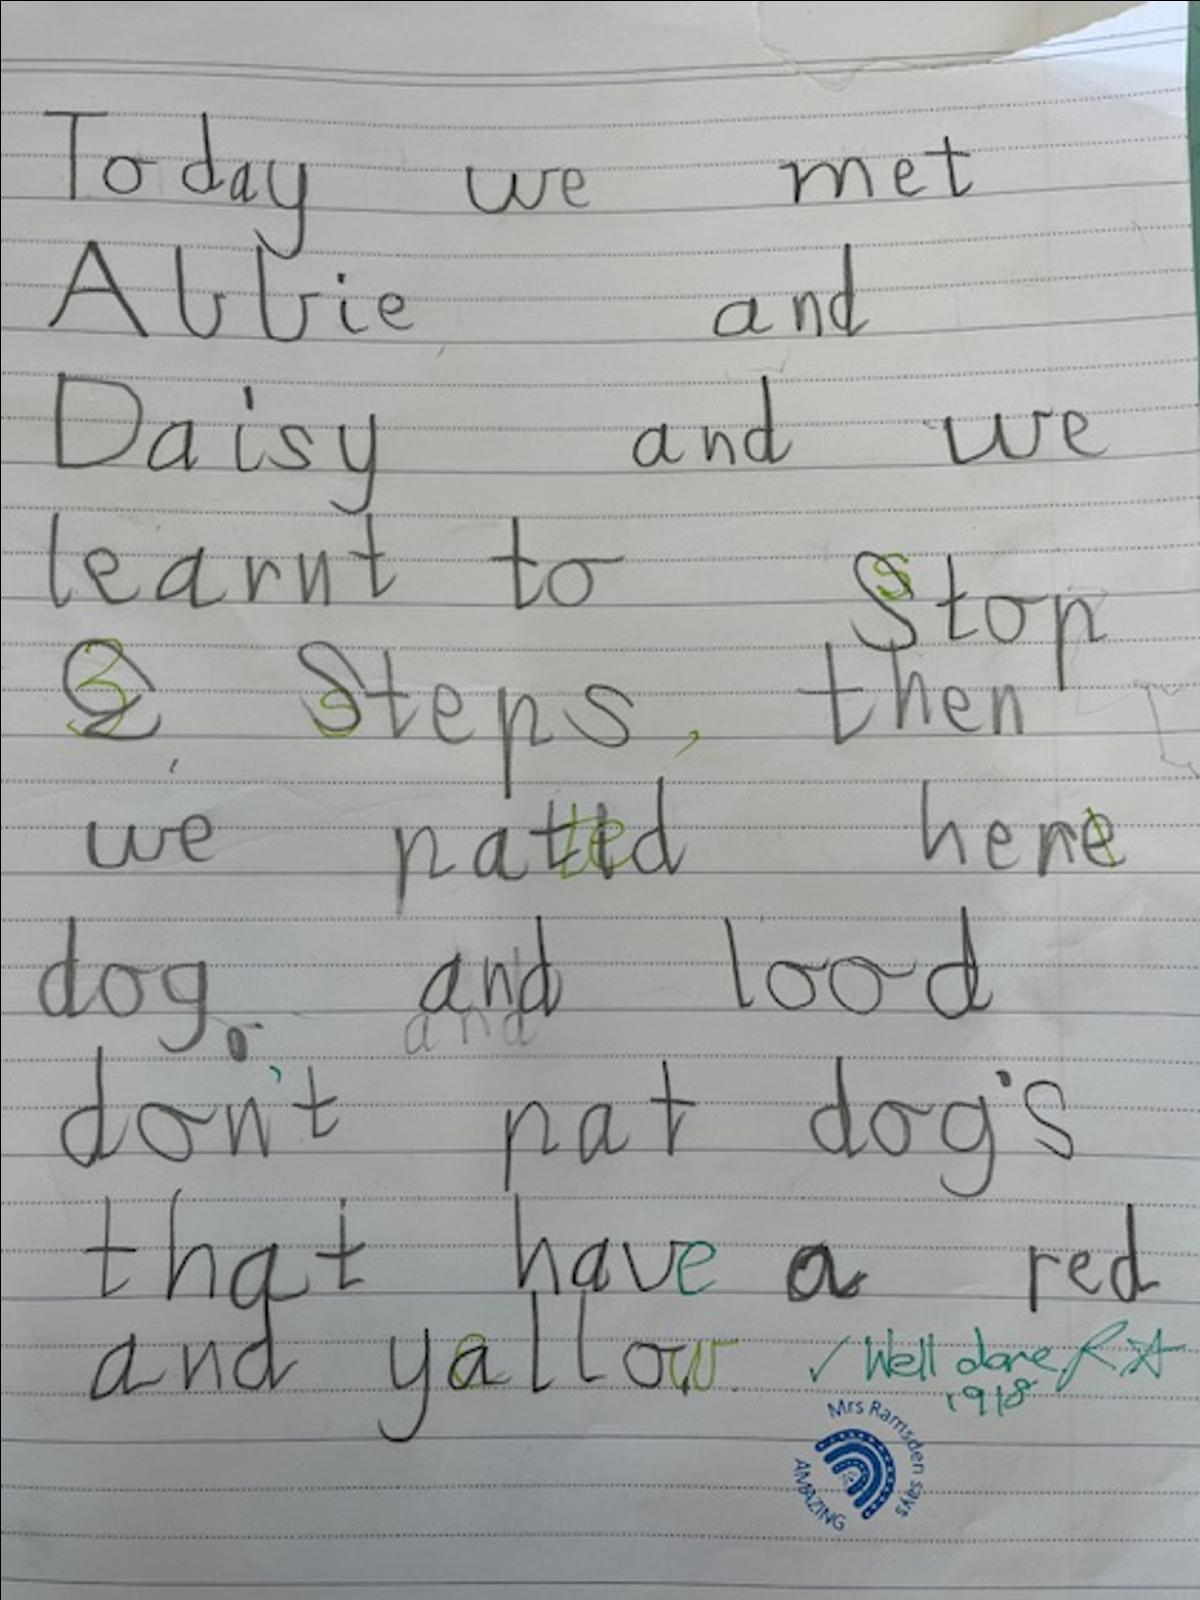 Today we met
Abbie and
Daisy and we
learnt to stop
3 steps, then
we patted here
dog. and lood
don't pat dog's
that have a red
and yellow.
✓ Well done R
19/8
Mrs Ramsden says
AMAZING